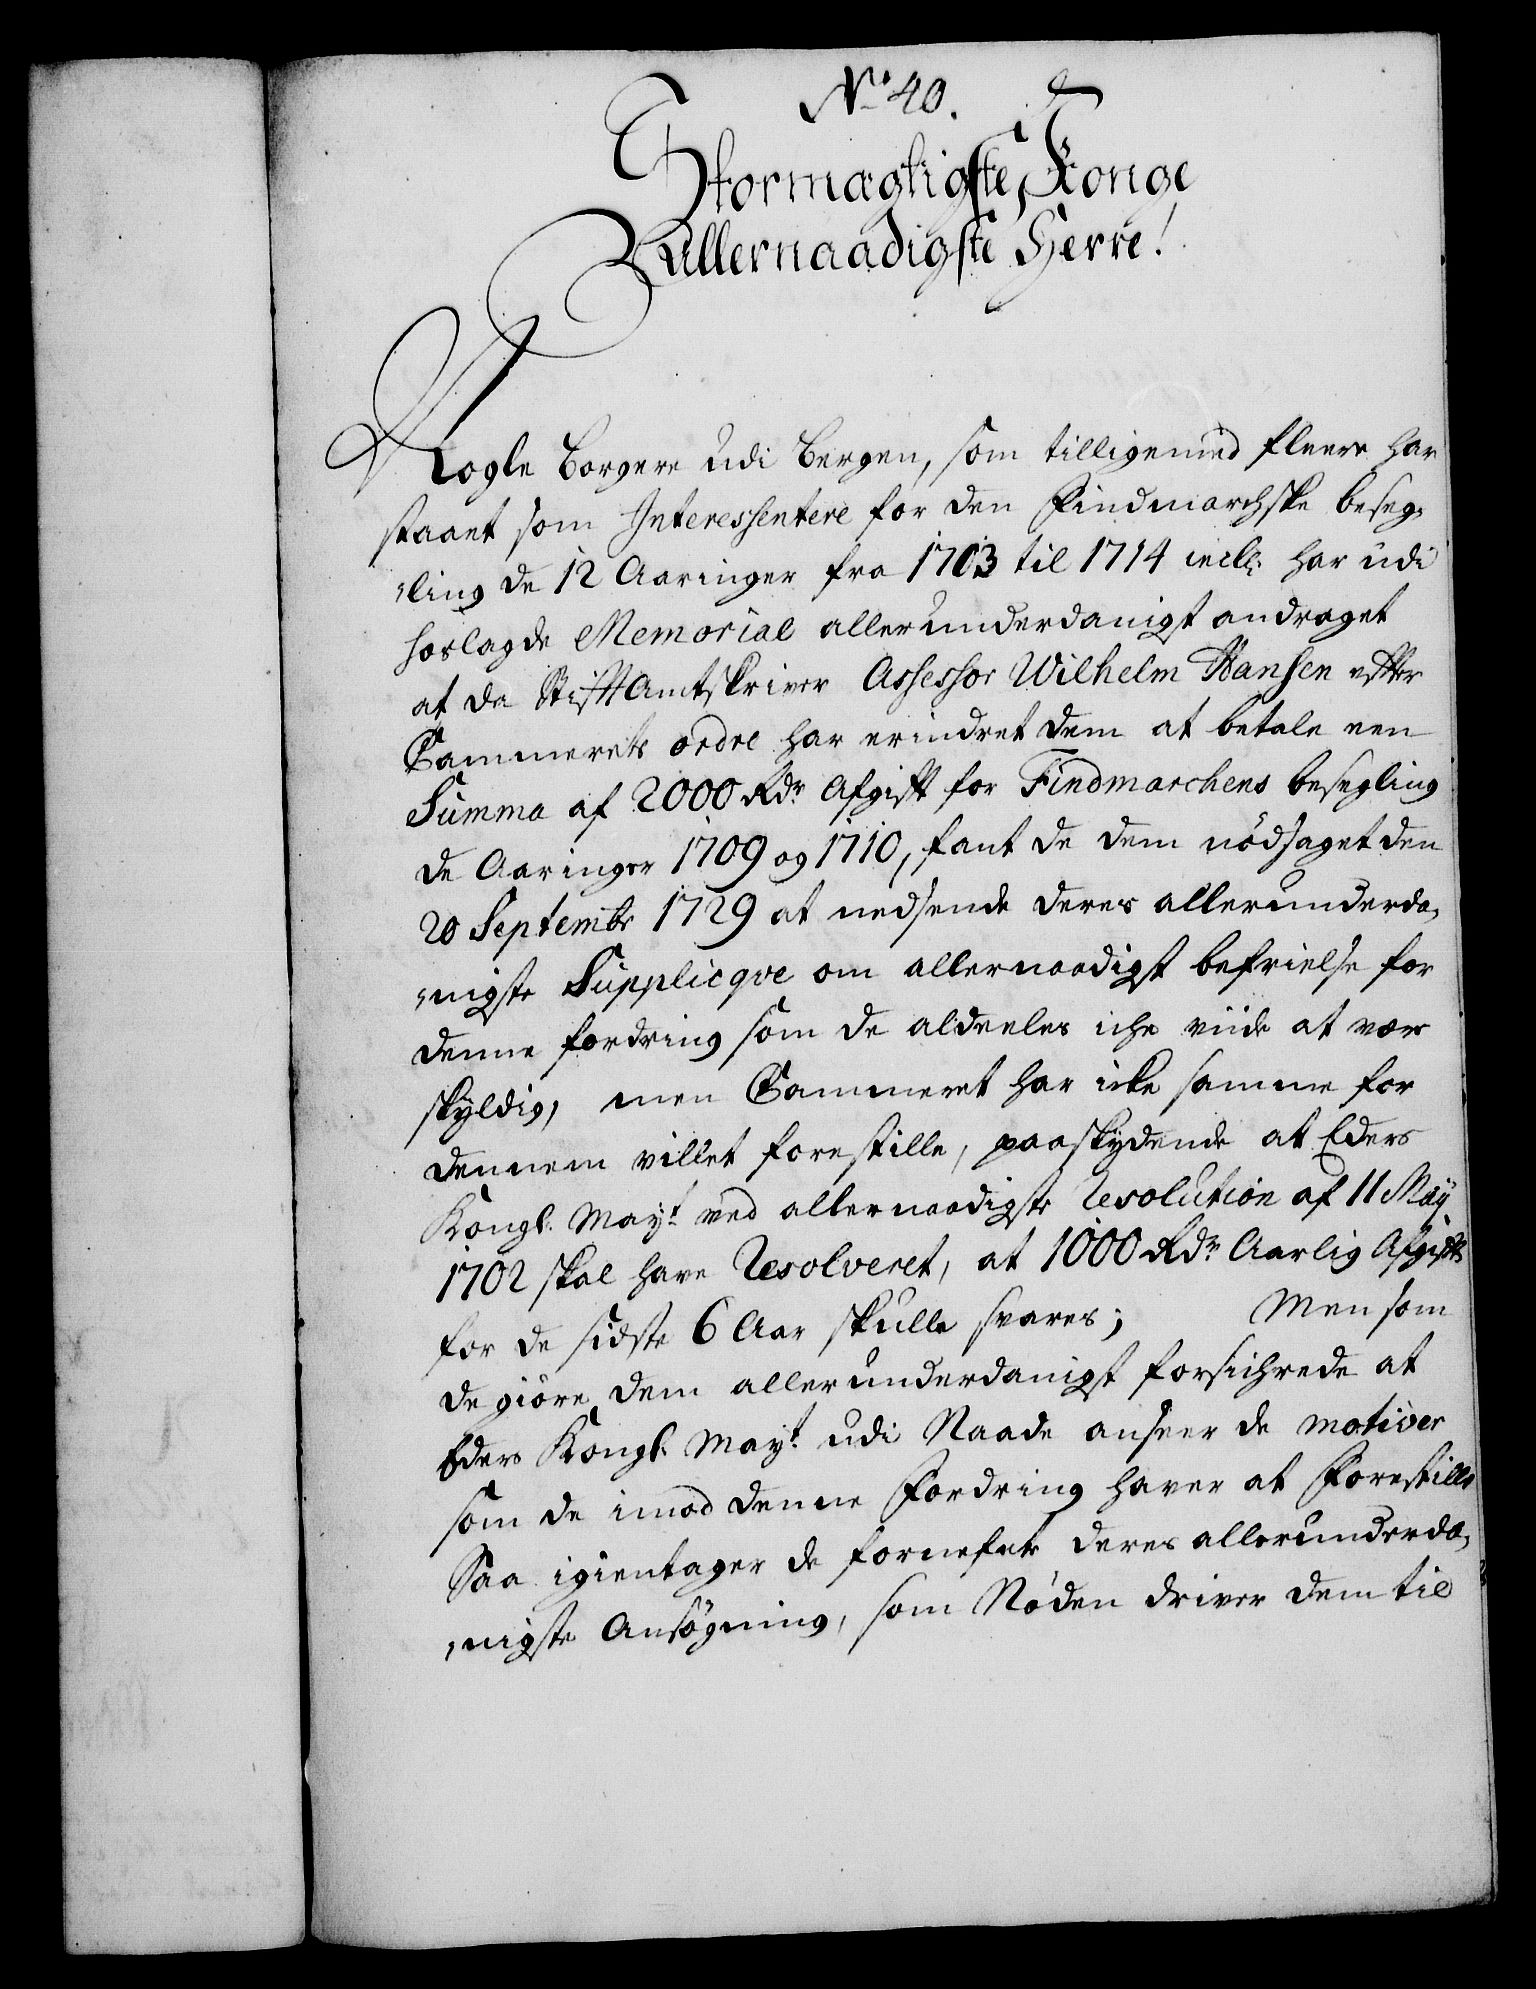 No 40.
Stormægtigste Konge
Allernaadigste Herre!
Nogle Borgere udi Bergen, som tilligemed fleere har
staaet som Interessentere for den Findmarchske beseg-
ling de 12 Aaringer fra 1703 til 1714 incl: har udi
hoslagde Memorial allerunderdanigst andraget
at da Stifft Amtskriver Assessor Wilhelm Hansen effter
Cammerets ordre har erindret dem at betale een
Summa af 2000 Rdr Afgifft for Findmarchens besegling
de Aaringer 1709 og 1710, fant de dem nödsaget den
20 Septembr 1729 at nedsende deres allerunderda-
nigste Supplicqve om allernaadigst befrielse for
denne fordring som de aldeeles iche viide at være
skÿldig, men Cammeret har icke samme for
dennem villet forestille, paaskÿdende at Eders
Kongl. Mayt ved allernaadigste Resolution af 11 Maÿ
1702 skal have Resolveret, at 1000 Rdr Aarlig Afgifft
for de sidste 6 Aar skulle svares; Men som
de giöre dem allerunderdanigst forsichrede at
Eders Kongl. Mayt udi Naade anseer de motiver
som de imod denne Fordring haver at Forestille
Saa igientager de fornefnte deres allerunderda-
nigste Ansögning, som Nöden driver dem til